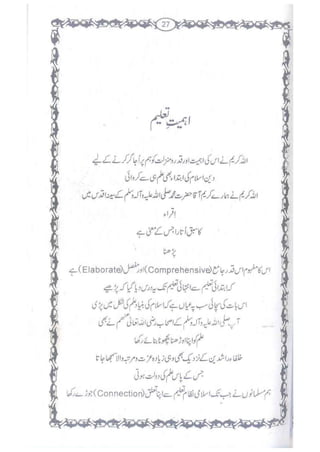 27
اہمیتِ تعلیم
اللہ کریم نے اس کی اہمیت اور قدر و منزلت کو ہم پر اُجاگر کرنے کے لیے
دین اسلام کی ابتداء بھی علم ہی سے کروائی
اللہ کریم نے ہمارے کریم آقا حضرت محمد صلی اللہ علیہ وآلہ وسلم کے سینہ اقدس میں
اقراء
کا سبق اُتارا جس کے معنی ہے
پڑھنا
اس کا مفہوم اس قدر جامع (Comprehensive) اور مفصل (Elaborate) ہے
کہ ابتدائی تعلیم سے انتہائی تعلیم تک یہ درس دیا گیا کہ پڑھیے
اس بات کی سچائی سب پہ عیاں ہے کہ اسلام کی بنیاد علم کی شکل میں پڑی
آپ صلی اللہ علیہ وآلہ وسلم کے اصحاب رضی اللہ تعالیٰ عنھم نے بھی
علم کو اپنا اوڑھنا بچھونا بنائے رکھا
خلفاء راشدین کے نزدیک بھی وہی زیادہ عزت و مرتبہ والا سمجھا جاتا
جس کے پاس علم کی دولت ہوتی
ہم مسلمانوں نے جب تک اسلامی نظام تعلیم سے اپنا تعلق (Connection) جوڑے رکھا